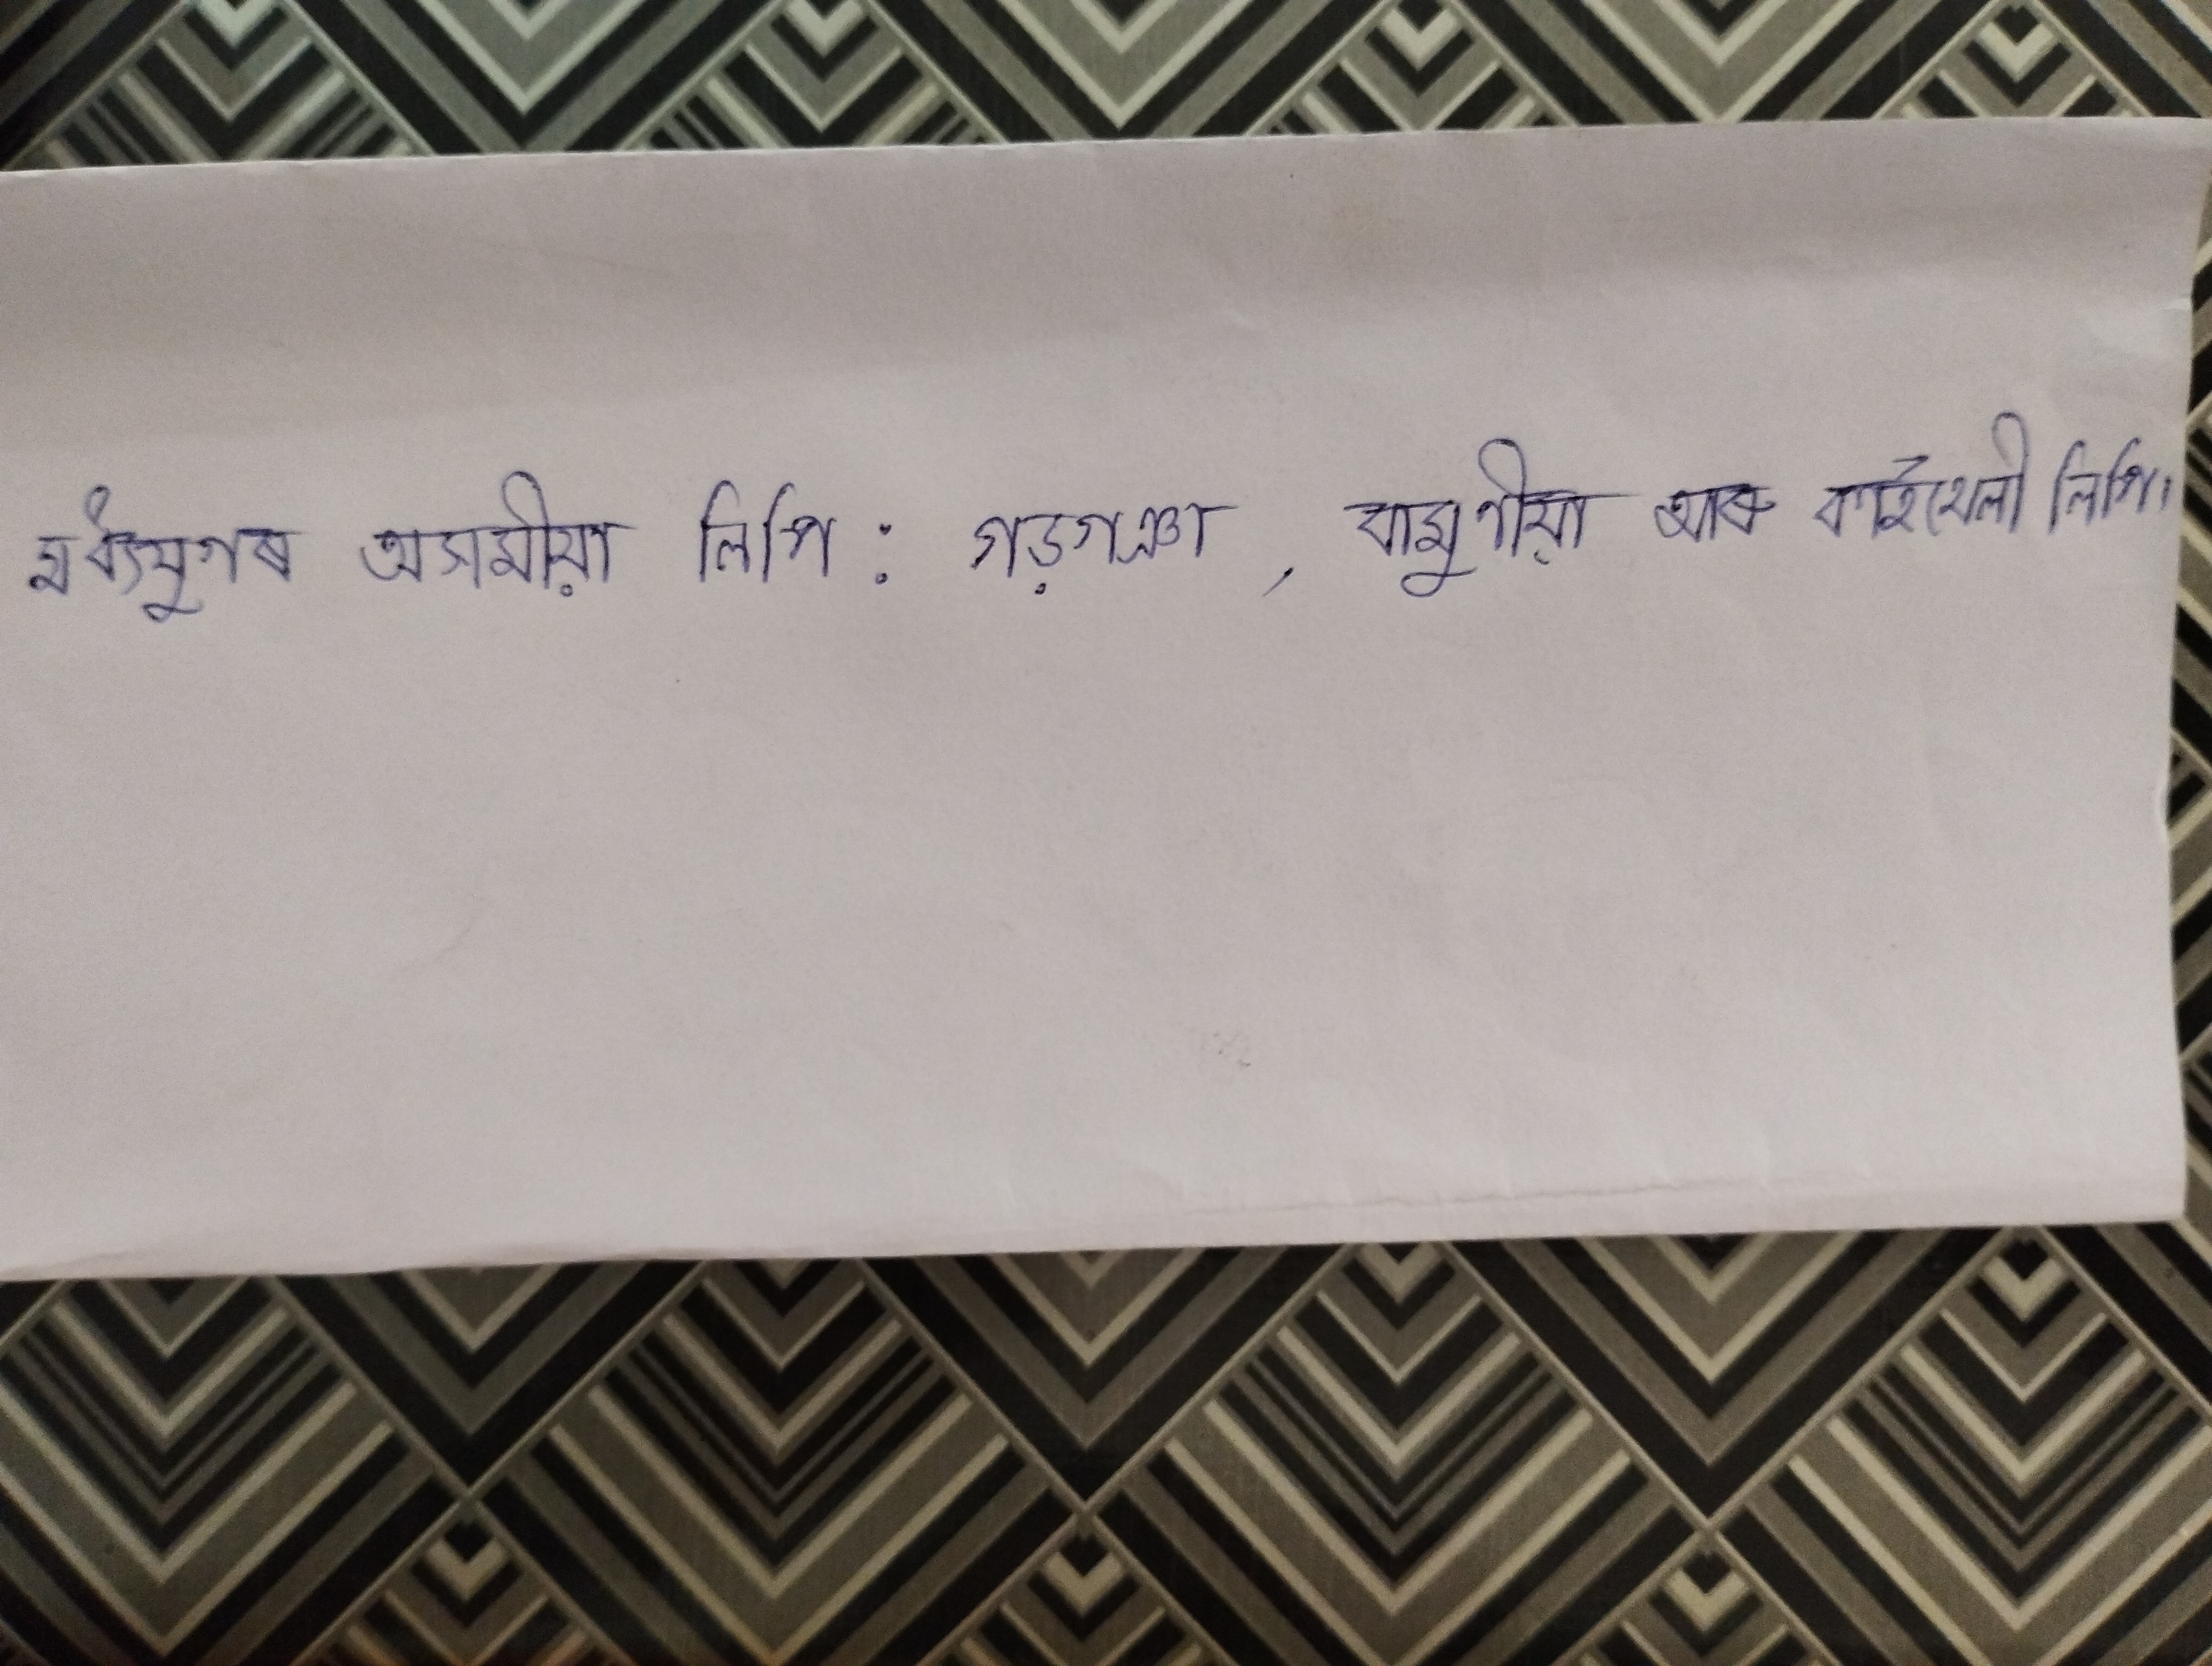 মধ্যযুগৰ অসমীয়া লিপি : গড়গঞা , বামুণীয়া আৰু কাইথেলী লিপি।